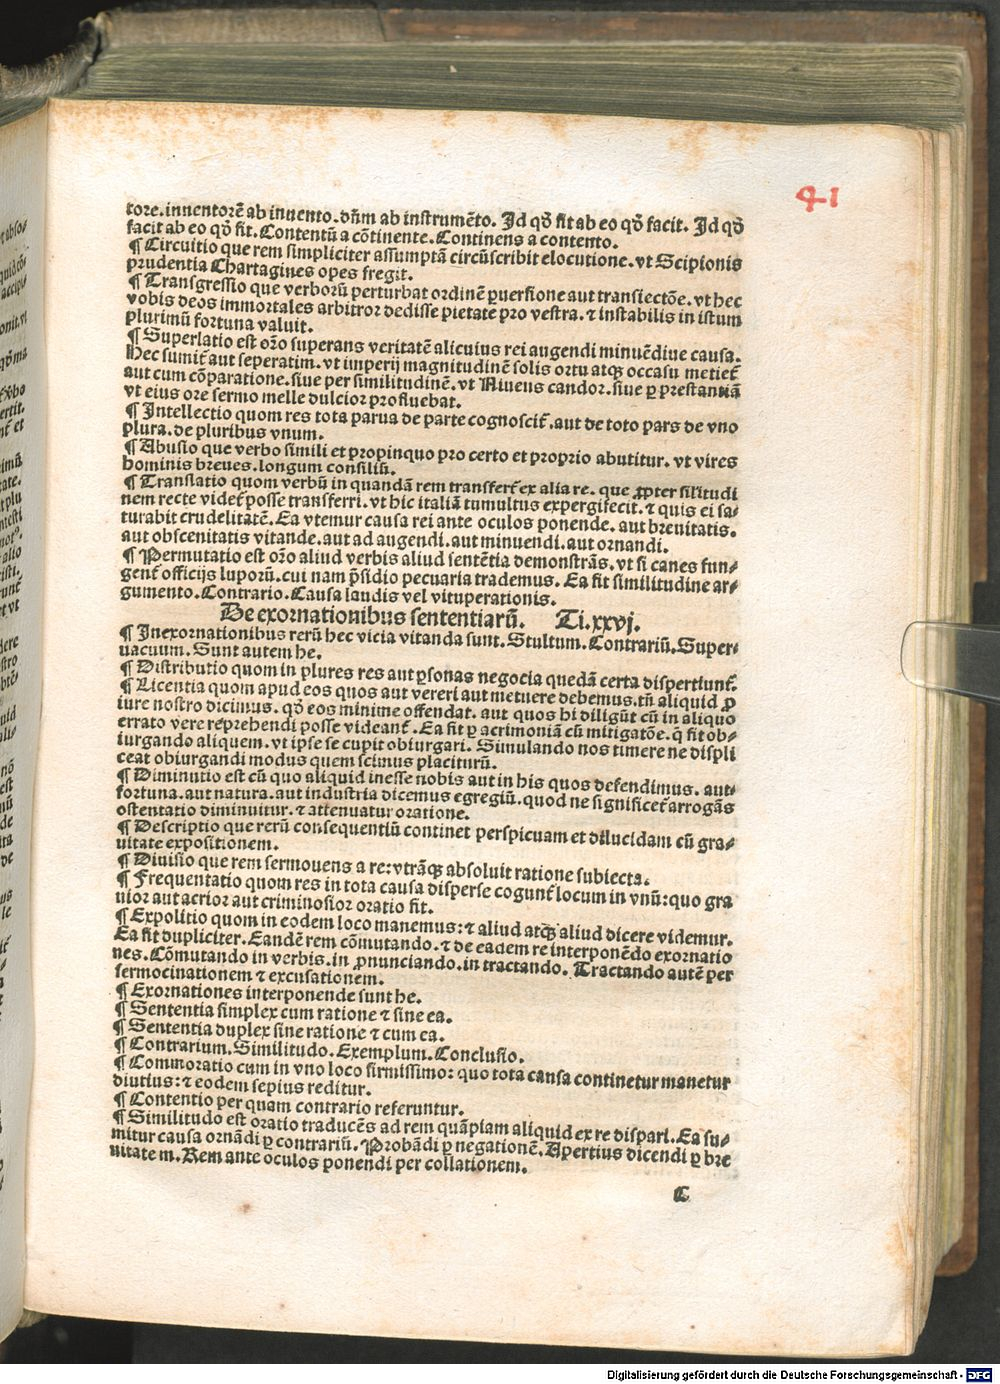 41
tore. inuentorē ab inuento. dn̄m ab instrumēto. Id qd̄ fit ab eo qd̄ facit. Id qd̄
facit ab eo qd̄ fit. Contentū a cōtinente. Continens a contento.
¶ Circuitio que rem simpliciter assumptā circūscribit elocutione. vt Scipionis
prudentia Chartagines opes fregit.
¶ Transgressio que verborū perturbat ordinē ꝑuersione aut transiectōe. vt hec
vobis deos immortales arbitror dedisse pietate pro vestra. ⁊ instabilis in istum
plurimū fortuna valuit.
¶ Superlatio est oro superans veritatē alicuius rei augendi minuēdiue causa.
Hec sumit̄ aut seperatim. vt imperij magnitudinē solis ortu atqꝫ occasu metiet̄
aut cum cōparatione. siue per similitudinē. vt Niueus candor. siue ꝑ prestantiā
vt eius ore sermo melle dulcior profluebat.
¶ Intellectio quom res tota parua de parte cognoscit̄. aut de toto pars de vno
plura. de pluribus vnum.
¶ Abusio que verbo simili et propinquo pro certo et proprio abutitur. vt vires
hominis breues. longum consiliū.
¶ Translatio quom verbū in quandā rem transfert̄ ex alia re. que ꝓpter sil'itudi
nem recte videt̄ posse transferri. vt hic italiā tumultus expergifecit. ⁊ quis ei sa-
turabit crudelitatē. Ea vtemur causa rei ante oculos ponende. aut breuitatis.
aut obscenitatis vitande. aut ad augendi. aut minuendi. aut ornandi.
¶ Permutatio est oro aliud verbis aliud sentētia demonstrās. vt si canes fun-
gent̄ officijs luporū. cui nam p̄sidio pecuaria trademus. Ea fit similitudine ar-
gumento. Contrario. Causa laudis vel vituperationis.
De exornationibus sententiarū. Ti. xxvj.
¶ In exornationibus rerū hec vicia vitanda sunt. Stultum. Contrariū. Super-
vacuum. Sunt autem he.
¶ Distributio quom in plures res aut ꝑsonas negocia quedā certa dispertiunt̄.
¶ Licentia quom apud eos quos aut vereri aut metuere debemus. tn̄ aliquid ꝓ
iure nostro dicimus. qd̄ eos minime offendat. aut quos hi diligūt cū in aliquo
errato vere reprehendi posse videant̄. Ea fit ꝑ acrimoniā cū mitigatōe. q̄ fit ob-
iurgando aliquem. vt ipse se cupit obiurgari. Simulando nos timere ne displi
ceat obiurgandi modus quem scimus placiturū.
¶ Diminutio est cū quo aliquid inesse nobis aut in his quos defendimus. aut-
fortuna. aut natura. aut industria dicemus egregiū. quod ne significet̄ arrogās
ostentatio diminuitur. ⁊ attenuatur oratione.
¶ Descriptio que rerū consequentiū continet perspicuam et dilucidam cū gra-
uitate expositionem.
¶ Diuisio que rem sermouens a re: vtrāqꝫ absoluit ratione subiecta.
¶ Frequentatio quom res in tota causa disperse cogunt̄ locum in vnū: quo gra
uior aut acrior aut criminosior oratio fit.
¶ Expolitio quom in eodem loco manemus: ⁊ aliud atqꝫ aliud dicere videmur.
Ea fit dupliciter. Eandē rem cōmutando. ⁊ de eadem re interponēdo exornatio
nes. Cōmutando in verbis. in ꝓnunciando. in tractando. Tractando autē per
sermocinationem ⁊ excusationem.
¶ Exornationes interponende sunt he.
¶ Sententia simplex cum ratione ⁊ sine ea.
¶ Sententia duplex sine ratione ⁊ cum ea.
¶ Contrarium. Similitudo. Exemplum. Conclusio.
¶ Commoratio cum in vno loco firmissimo: quo tota causa continetur manetur
diutius: ⁊ eodem sepius reditur.
¶ Contentio per quam contrario referuntur.
¶ Similitudo est oratio traducēs ad rem quāpiam aliquid ex re dispari. Ea su-
mitur causa ornādi ꝑ contrariū. Probādi ꝑ negationē. Apertius dicendi ꝑ bre
uitatem. Rem ante oculos ponendi per collationem.
C
Digitalisierung gefördert durch die Deutsche Forschungsgemeinschaft - DFG